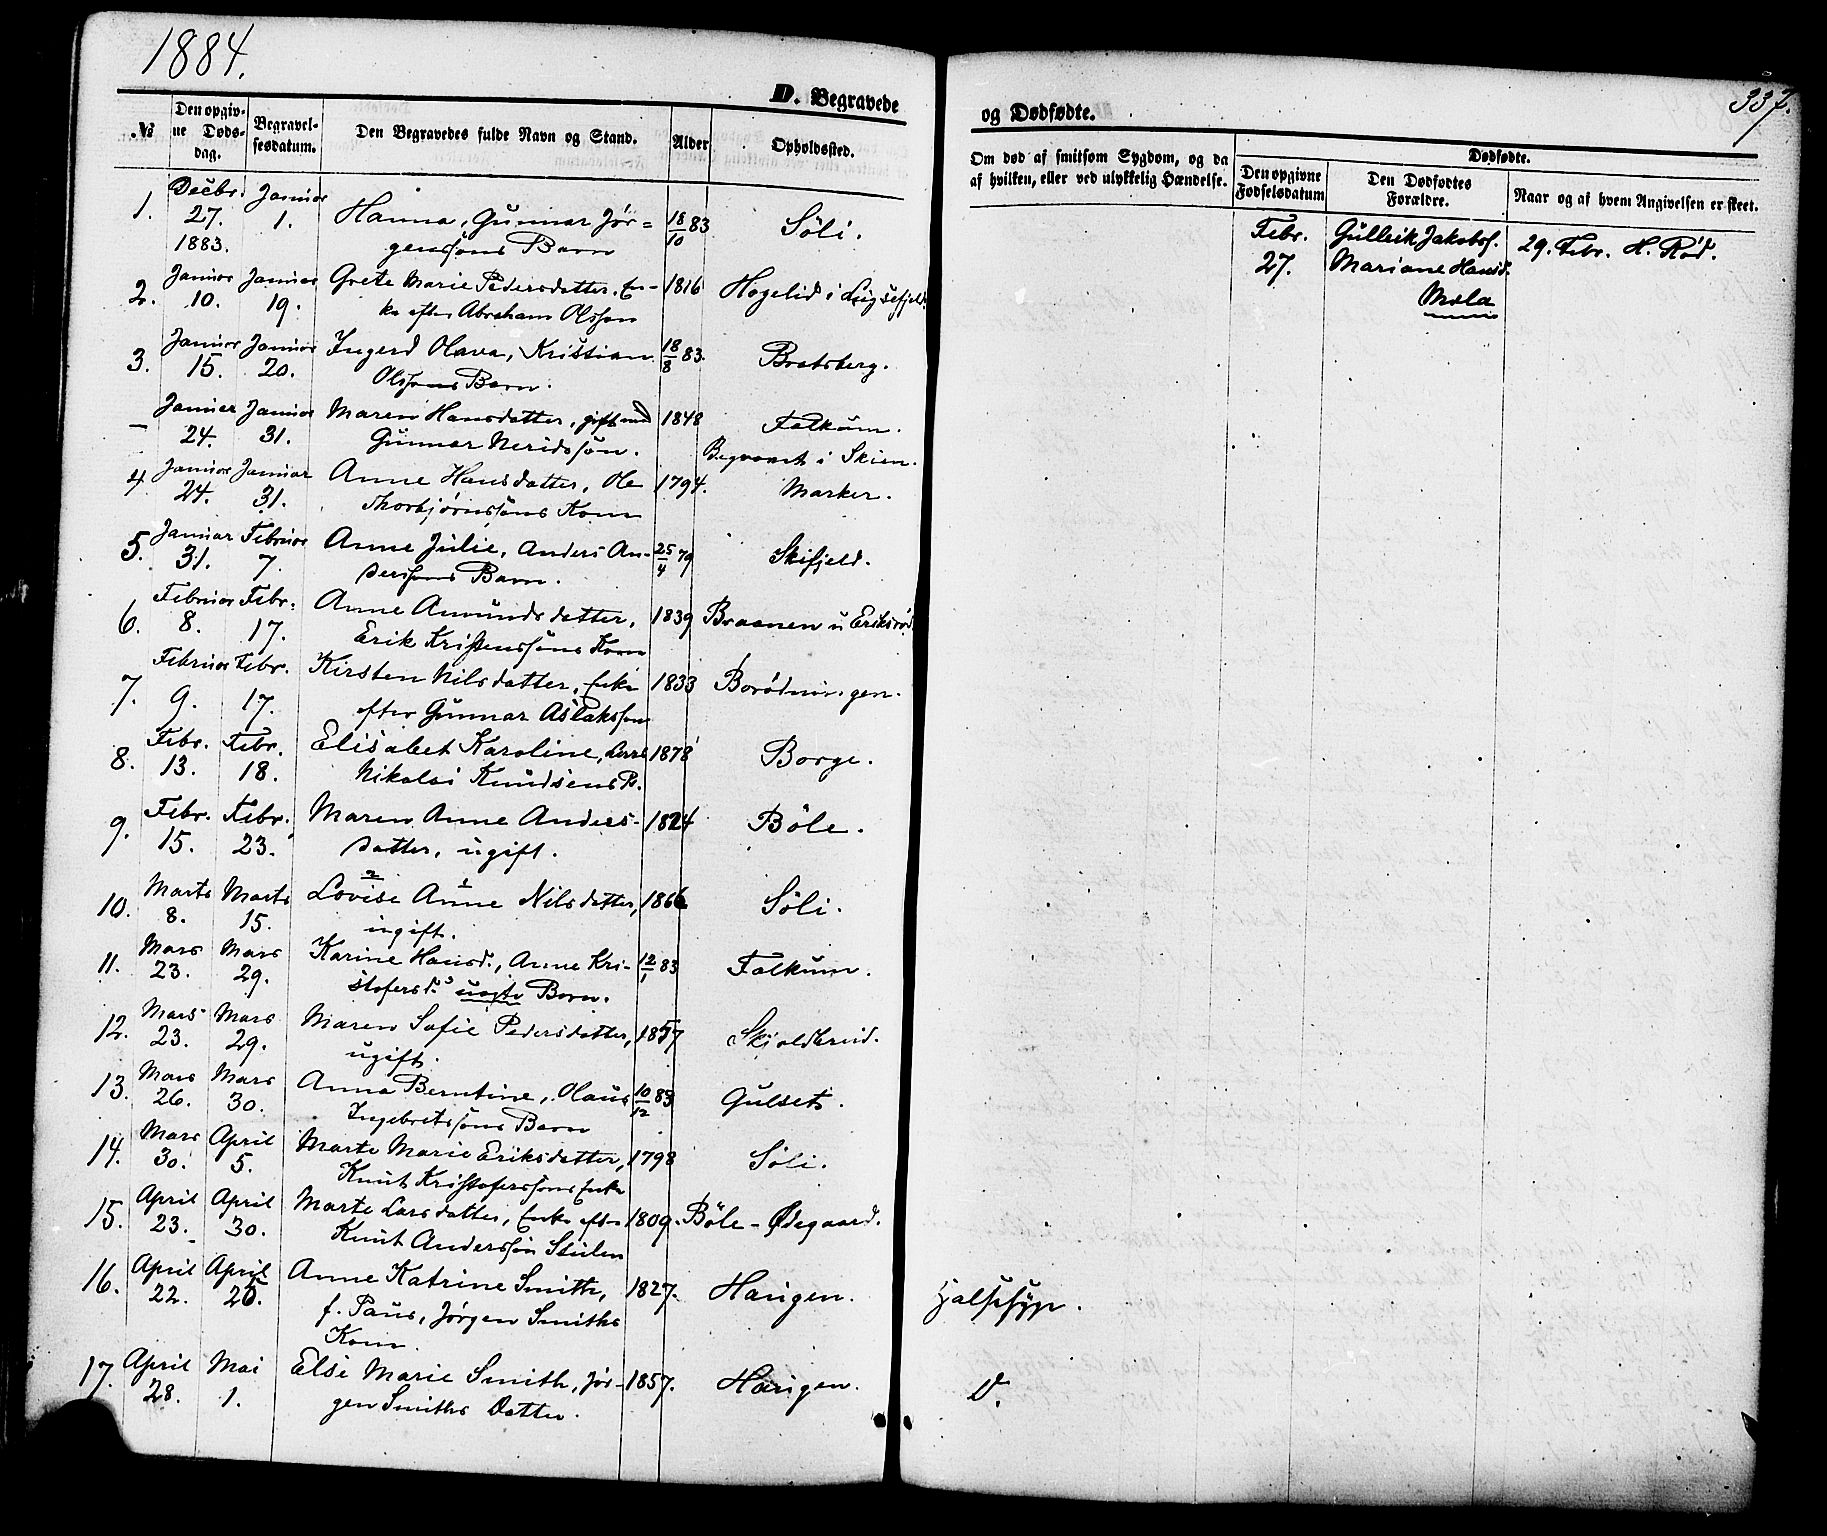 1884.
337.
D. Begravede
og Dødfødte.
№
Den opgivne Døds-dag.
Begravel-sesdatum.
Den Begravedes fulde Navn og Stand.
Alder
Opholdssted.
Om død af smitsom Sygdom, og da af hvilken, eller ved ulykkelig Hændelse.
Dødfødte.
Den opgivne Fødselsdatum
Den Dødfødtes Forældre.
Naar og af hvem Angivelsen er skeet.
1. Decbr. 27. 1883. Januar 1. Hanna, Gunnar Jør- 18/10 83 Söli.
gensöns Barn
2. Januar 10. Januar 19. Grete Marie Pedersdatter, En- 1816 Hogelid i
ke efter Abraham Olsson
3. Januar 15. Januar 20. Ingerd Olava, Kristian 18/8 83. Bratsberg.
Olssons Barn.
– Januar 24. Januar 31. Maren Hansdatter, gift med 1848 Falkum.
Gunnar Neridssön. Begravet i Skien.
4. Januar 24. Januar 31. Anne Hansdatter, Ole 1794. Marker.
Thorbjørnsöns Kone
5. Januar 31. Februar 7. Anne Julie, Anders An- 25/4 79 Skifjeld.
derssons Barn.
6. Februar 8. Febr. 17. Anne Amundsdatter, 1839 Braanen u Eriksrød
Erik Kristenssöns Kone
7. Februar 9. Febr. 17. Kirsten Nilsdatter, Enke 1833 Borödningen.
efter Gunnar Aslaksson
8. Febr. 13. Febr. 18. Elisabet Karoline, Lars 1878 Borge.
Nikolai Knudsens B.
9. Febr. 15. Febr. 23. Maren Anne Anders- 1824 Böle.
datter, ugift.
10. Marts 8. Marts 15. Lovise Anne Nilsdatter, 1866 Söli.
2 1
ugift.
11. Mars 23. Mars 29. Karine Hansd., Anne Kri- 12/1 83 Falkum.
stofersd.s uægte Barn.
12. Mars 23. Mars 29. Maren Sofie Pedersdatter, 1857 Skjoldbreid.
ugift.
13. Mars 26. Mars 30. Anna Berntine, Olaus 10/12 83 Gulset.
Ingebretssöns Barn
14. Mars 30. April 5. Marte Marie Eriksdatter, 1798 Söli.
Knut Kristoferssöns Enke
15. April 23. April 30. Marte Larsdatter, Enke eft- 1809. Böle-Ødegaard.
Knut Anderssön Stulen
16. April 22. April 25. Anne Katrine Smith, 1827. Haugen. Halssyge.
f. Paus, Jørgen Smiths
Kone.
17. April 28. Mai 1. Else Marie Smith, Jør- 1857. Haugen. D.
gen Smiths Datter.
Febr. 27. Gullik Jakobss. 29. Febr. H. Röd.
Mariane Hansd.
Mæla